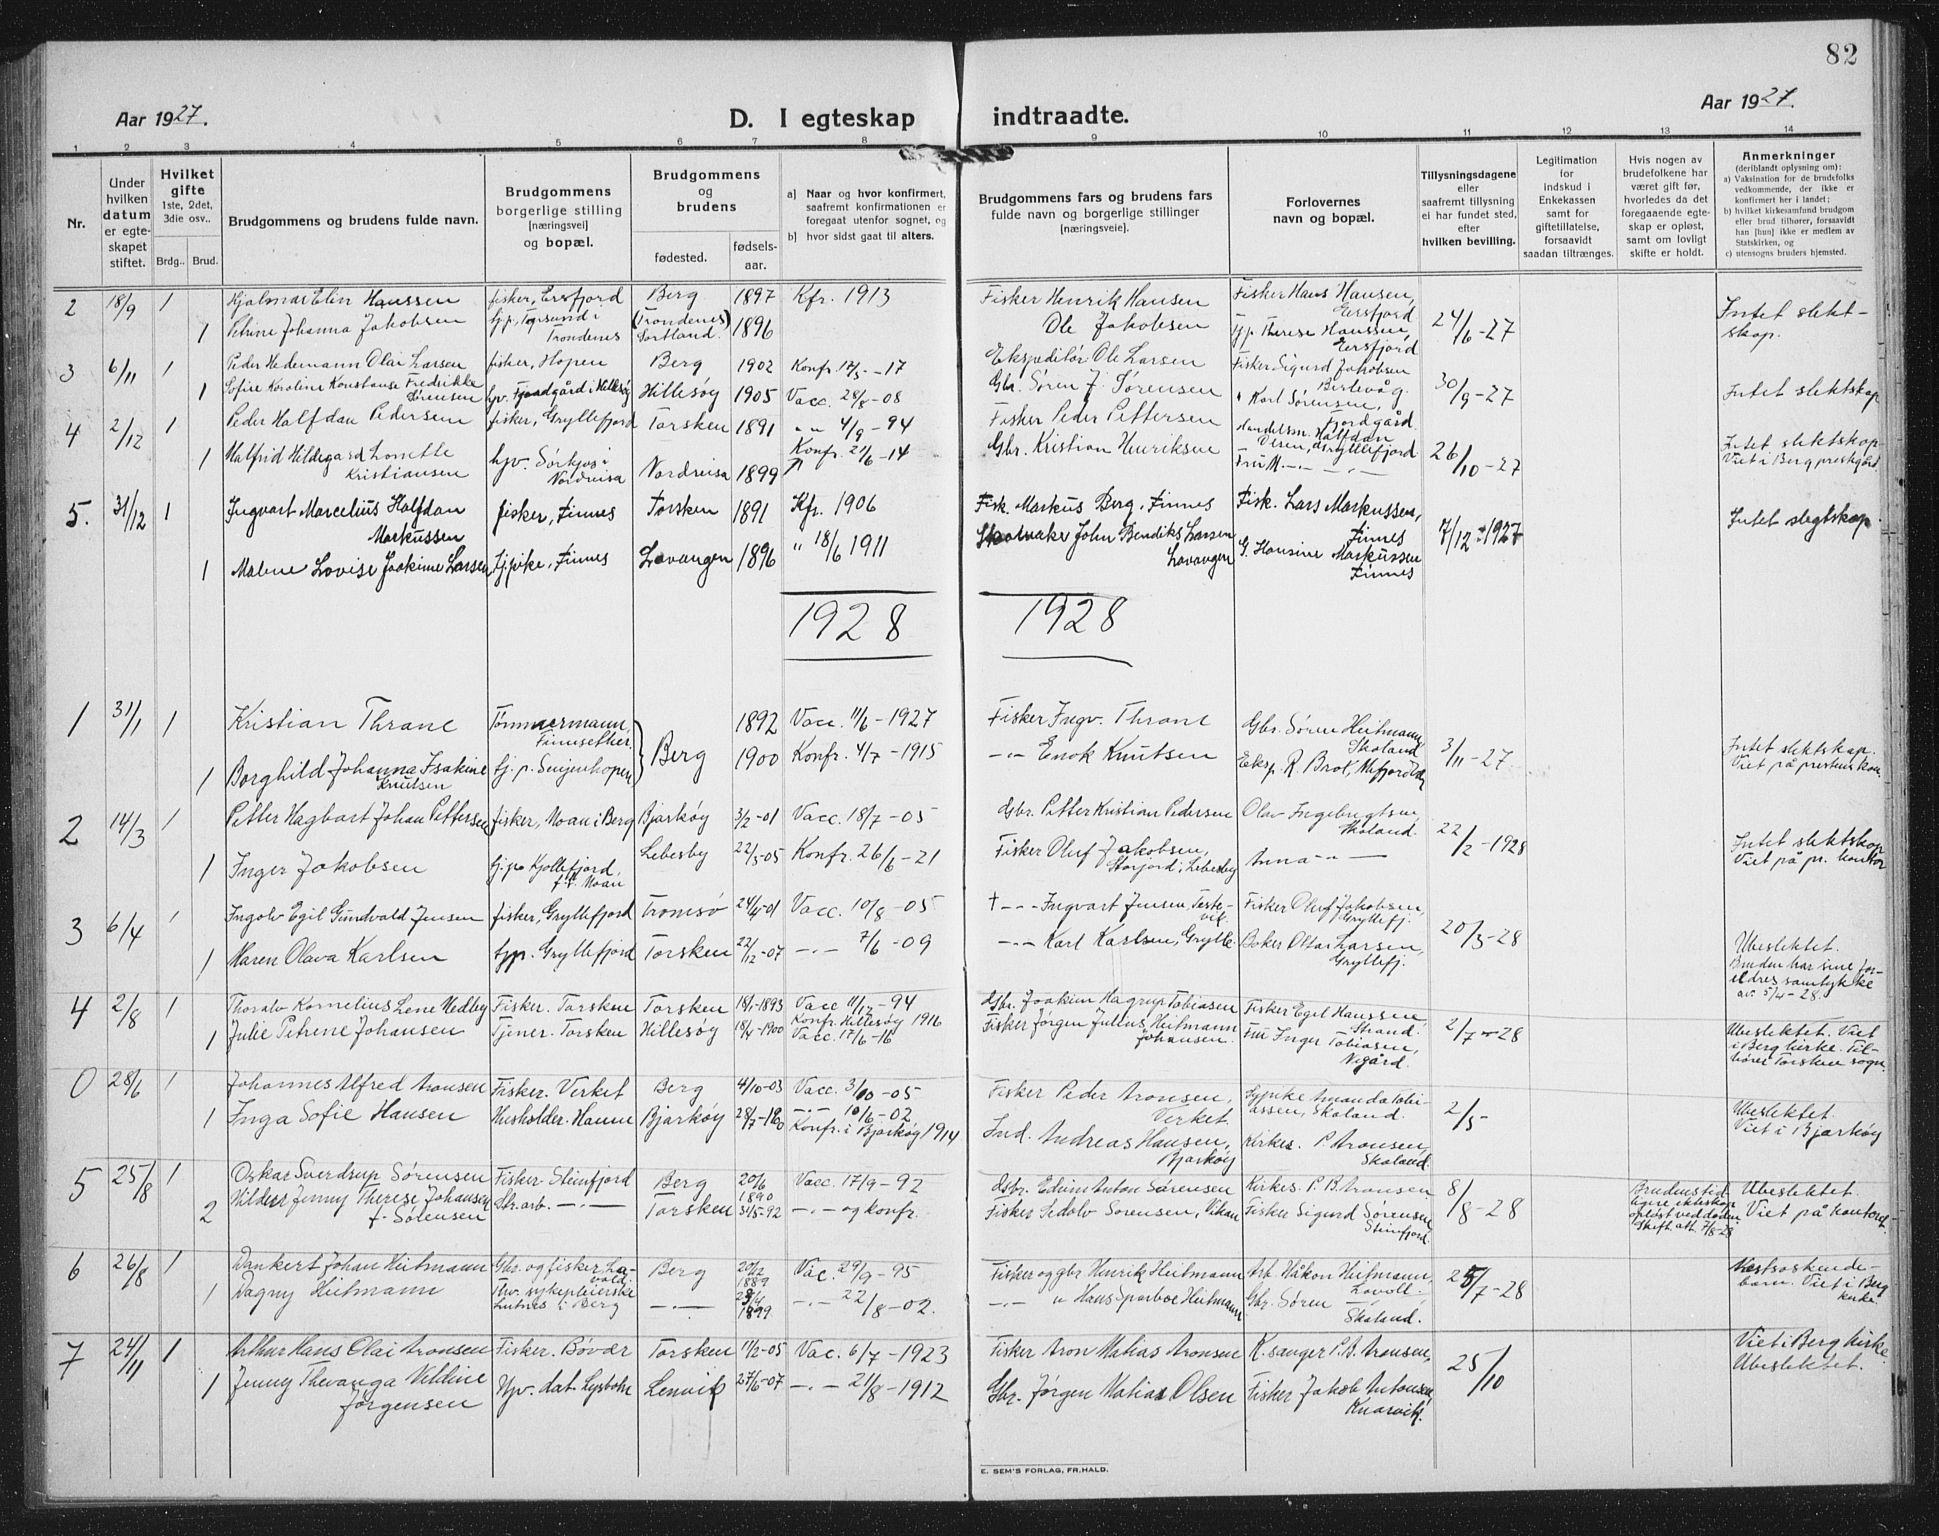 82
Aar 1927.
D. I egteskap indtraadte.
Aar 1927.
1 2 3 4 5 6 7 8 9 10 11 12 13 14
Nr.
Under hvilken datum er egteskapet stiftet.
Hvilket gifte 1ste, 2det, 3die osv..
Brdg.. Brud.
Brudgommens og brudens fulde navn.
Brudgommens borgerlige stilling [næringsvei] og bopæl.
Brudgommens og brudens
fødested.
fødsels-aar.
a) Naar og hvor konfirmert, saafremt konfirmationen er foregaat utenfor sognet, og
b) hvor sidst gaat til alters.
Brudgommens fars og brudens fars fulde navn og borgerlige stillinger [næringsveie].
Forlovernes navn og bopæl.
Tillysningsdagene eller saafremt tillysning ei har fundet sted, efter hvilken bevilling.
Legitimation for indskud i Enkekassen samt for giftetillatelse, forsaavidt saadan tiltrænges.
Hvis nogen av brudefolkene har været gift før, hvorledes da det foregaaende egteskap er opløst, samt om lovligt skifte er holdt.
Anmerkninger (deriblandt oplysning om):
a) Vaksination for de brudefolks vedkommende, der ikke er konfirmert her i landet;
b) hvilket kirkesamfund brudgom eller brud tilhører, forsaavidt han [hun] ikke er medlem av Statskirken, og
c) utensogns bruders hjemsted.
2 18/9 1 Hjalmar Elin Hanssen fisker, Ersfjord Berg 1897 Kfr. 1913 Fisker Henrik Hansen Fisker Hans Hansen, Ersfjord 24/6-27 Intet slektskap.
1 Petrine Johanna Jakobsen (Trondenes) Sortland 1896 Ole Jakobsen Tjp. Therese Hanssen, Ersfjord
3 6/11 1 Peder Hedemann Olai Larsen fisker, Hopen Berg 1902 Konfr. -17 Ekspeditør Ole Larsen Fisker Sigurd Jakobsen 30/9-27 Intet slektskap
1 Sofine Karoline Konstanse Fredrikke Sørensen Hillesøy 1905 Vacc. 28/8-08 Gbr. Søren J. Sørensen Karl Sørensen, Fjordgård
4 2/12 1 Peder Halfdan Pedersen fisker, Gryllefjord Torsken 1891 " " 4/9-94 Fisker Peder Pettersen Handelsm. Halfdan Olsen, Gryllefjord 26/10-27 Intet slektskap Viet i Berg prestgård
1 Malfrid Hildegard Kristiansen hjv. Nordreisa Nordreisa 1899 Konfr. 21/6-14 Gbr. Kristian Henriksen Fru M. -"-
5. 31/12 1 Ingvart Marcelius Halfdan Markussen fisker, Finnes Torsken 1891 Kfr. 1906 Fisk. Markus Berg, Finnes Fisk. Lars Markussen, Finnes 7/12 1927 Intet slegtskap
1 Malene Lovise Joakime Larsen Finnes Lavangen 1896 " 18/6 1911 John Bendiks Larsen Lavangen G. Hansine Markussen Finnes
1928 1928
1 31/1 1 Kristian Thrane Tømmermann, 1892 Vacc. 11/6-1927 Fisker Ingv. Thrane Gbr. Søren Heitmann, Skaland 3/11-27 Intet slektskap. Viet på prestens kon.
1 Borghild Johanna Isakine Knutsen tj. p. Senjenhopen Berg 1900 Konfr. 4/7-1915 -"- Enok Knutsen Eksp. R. Brok, Mefjordvær
2 14/3 1 Petter Hagbart Johan Pettersen fisker, Moan i Berg Bjarkøy 3/2-01 Vacc. 18/7-05 Gbr. Petter Kristian Pedersen Olav Ingebrigtsen Skaland 22/2-1928 Intet slektskap Viet på pr. kontor
1 Inger Jakobsen tj. p. Kjøllefjord, f. t. Moan Lebesby 22/5-05 Konfr. 26/6-21 Fisker Oluf Jakobsen, Storfjord, Lebesby Anna -"-
3 6/4 1 Ingolv Egil Gundvald Jensen fisker, Gryllefjord Tromsø 24/4-01 Vacc. 10/8-05 † -"- Ingvart Jensen, Fisker Oluf Jakobsen, Gryllefj. 20/3-28
1 Maren Olava Karlsen tjp. Gryllefjord Torsken 22/12-07 -"- 7/6-09 -"- Karl Karlsen, Grylle. Larsen, Gryllefj. Ubeslektet. Bruden har sine foreldres samtykke av 5/4-28.
4 2/8 1 Thoralv Kornelius Lene Nedby Fisker. Torsken Torsken 18/1-1893 Vacc 11/12-94 Gbr. Joakim Hagrup Tobiasen Fisker Egil Hanssen Strand. 2/7-28 Ubeslektet. Viet i Berg kirke. Tilhører Torsken sogn.
1 Julie Petrine Johansen Tjener. Torsken Hillesøy 18/4-1900 Konfr. Hillesøy 1916 Vacc. 17/6-16 Fisker Jørgen Julius Heitmann Johansen. Fru Inger Tobiasen, Nygård.
0 28/6 1 Johannes Alfred Aronsen Fisker. Verket Berg 4/10-03 Vacc. 3/10-05 Fisker Peder Aronsen, Verket. Amanda Tobiassen, Skaland. 2/5- Ubeslektet. Viet i Bjarkøy
1 Inga Sofie Hansen Husholder. Hamn Bjarkøy 28/7-1900 -"- 10/6-02 Konfr. i Bjarkøy 1914 Ind. Andreas Hansen, Bjarkøy Kirkes. P. Aronsen, Skaland.
5 25/8 1 Oskar Sverdrup Sørensen Fisker Steinfjord Berg 20/6 1890 Vacc. 17/9-92 Gbr. Edvin Anton Sørensen Kirkes. P. B. Aronsen 8/8-28 Brudens tidligere ekteskap opløst ved døden. Skift. att. 7/8-28 Ubeslektet. Viet på kontoret.
2 Jenny Therese Johansen f. Sørensen Str. arb. -"- Torsken 31/5-92 -"- og konfr. Fisker Sedolv Sørensen, Fisker Sigurd Sørensen Steinfjord.
6 26/8 1 Dankert Johan Heitmann Gbr. og fisker, Berg 20/2 1889 Vac. 29/9-95 Fisker og gbr Henrik Heitmann Arb. Håkon Heitmann, Lavoll. 25/7-28 Næstsøskendebarn. Viet i Berg kirke.
1 Dagny Heitmann sykepleierske i Berg -"- 1899 -"- 22/8-02. -"- " Hans Sparboe Heitmann Gbr. Søren -"- Skaland.
7 24/11 1 Arthur Hans Olai Aronsen Fisker. Bøvær Torsken 11/2-05 Vac. 6/7-1923 Fisker Aron Matias Aronsen K.sanger P. B. Aronsen, 25/10 Viet i Berg kirke. Ubeslektet.
1 Jenny Thevanga Vildine Jørgensen Hjv. dat. Lysbotn Lenvik 27/6-07 -"- 21/8-1912 Gbr. Jørgen Matias Olsen Fisker Jakob Antonsen, Knarvik.
E. SEM'S FORLAG, FR.HALD.